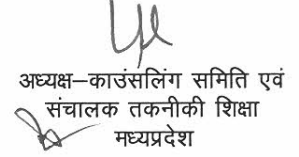 अध्यक्ष–काउंसलिंग समिति एवं
संचालक तकनीकी शिक्षा
मध्यप्रदेश